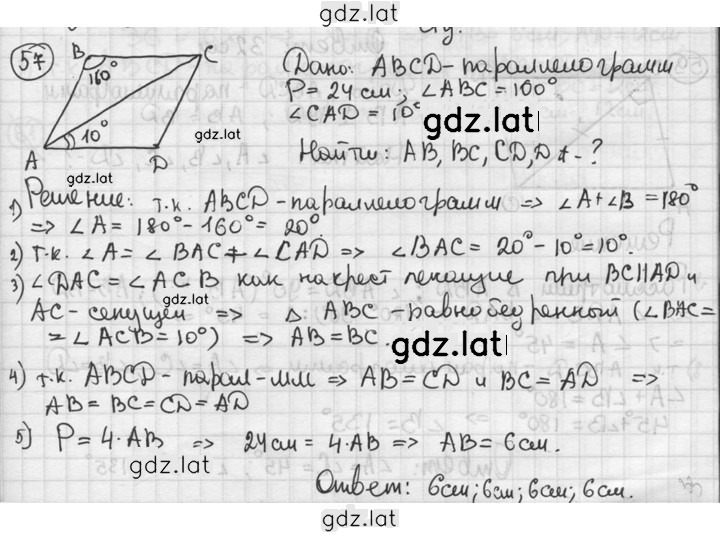 gdz.lat
57
B
C
160°
10°
A
D
gdz.lat
Дано: ABCD - параллелограмм
P = 24 см; ∠ABC = 160°
∠CAD = 10°
gdz.lat
Найти: AB, BC, CD, DA - ?
gdz.lat
Решение:
1) т.к. ABCD - параллелограмм => ∠A+∠B = 180°
=> ∠A = 180° - 160° = 20°.
2) т.к. ∠A = ∠BAC + ∠CAD => ∠BAC = 20° - 10° = 10°.
3) ∠DAC = ∠ACB как накрест лежащие при BC||AD и
gdz.lat
AC - секущей => △ABC - равнобедренный (∠BAC =
= ∠ACB = 10°) => AB = BC.
gdz.lat
4) т.к. ABCD - парал-мм => AB = CD и BC = AD =>
AB = BC = CD = AD
5) P = 4·AB => 24 см = 4·AB => AB = 6 см.
gdz.lat
Ответ: 6см; 6см; 6см; 6см.
gdz.lat